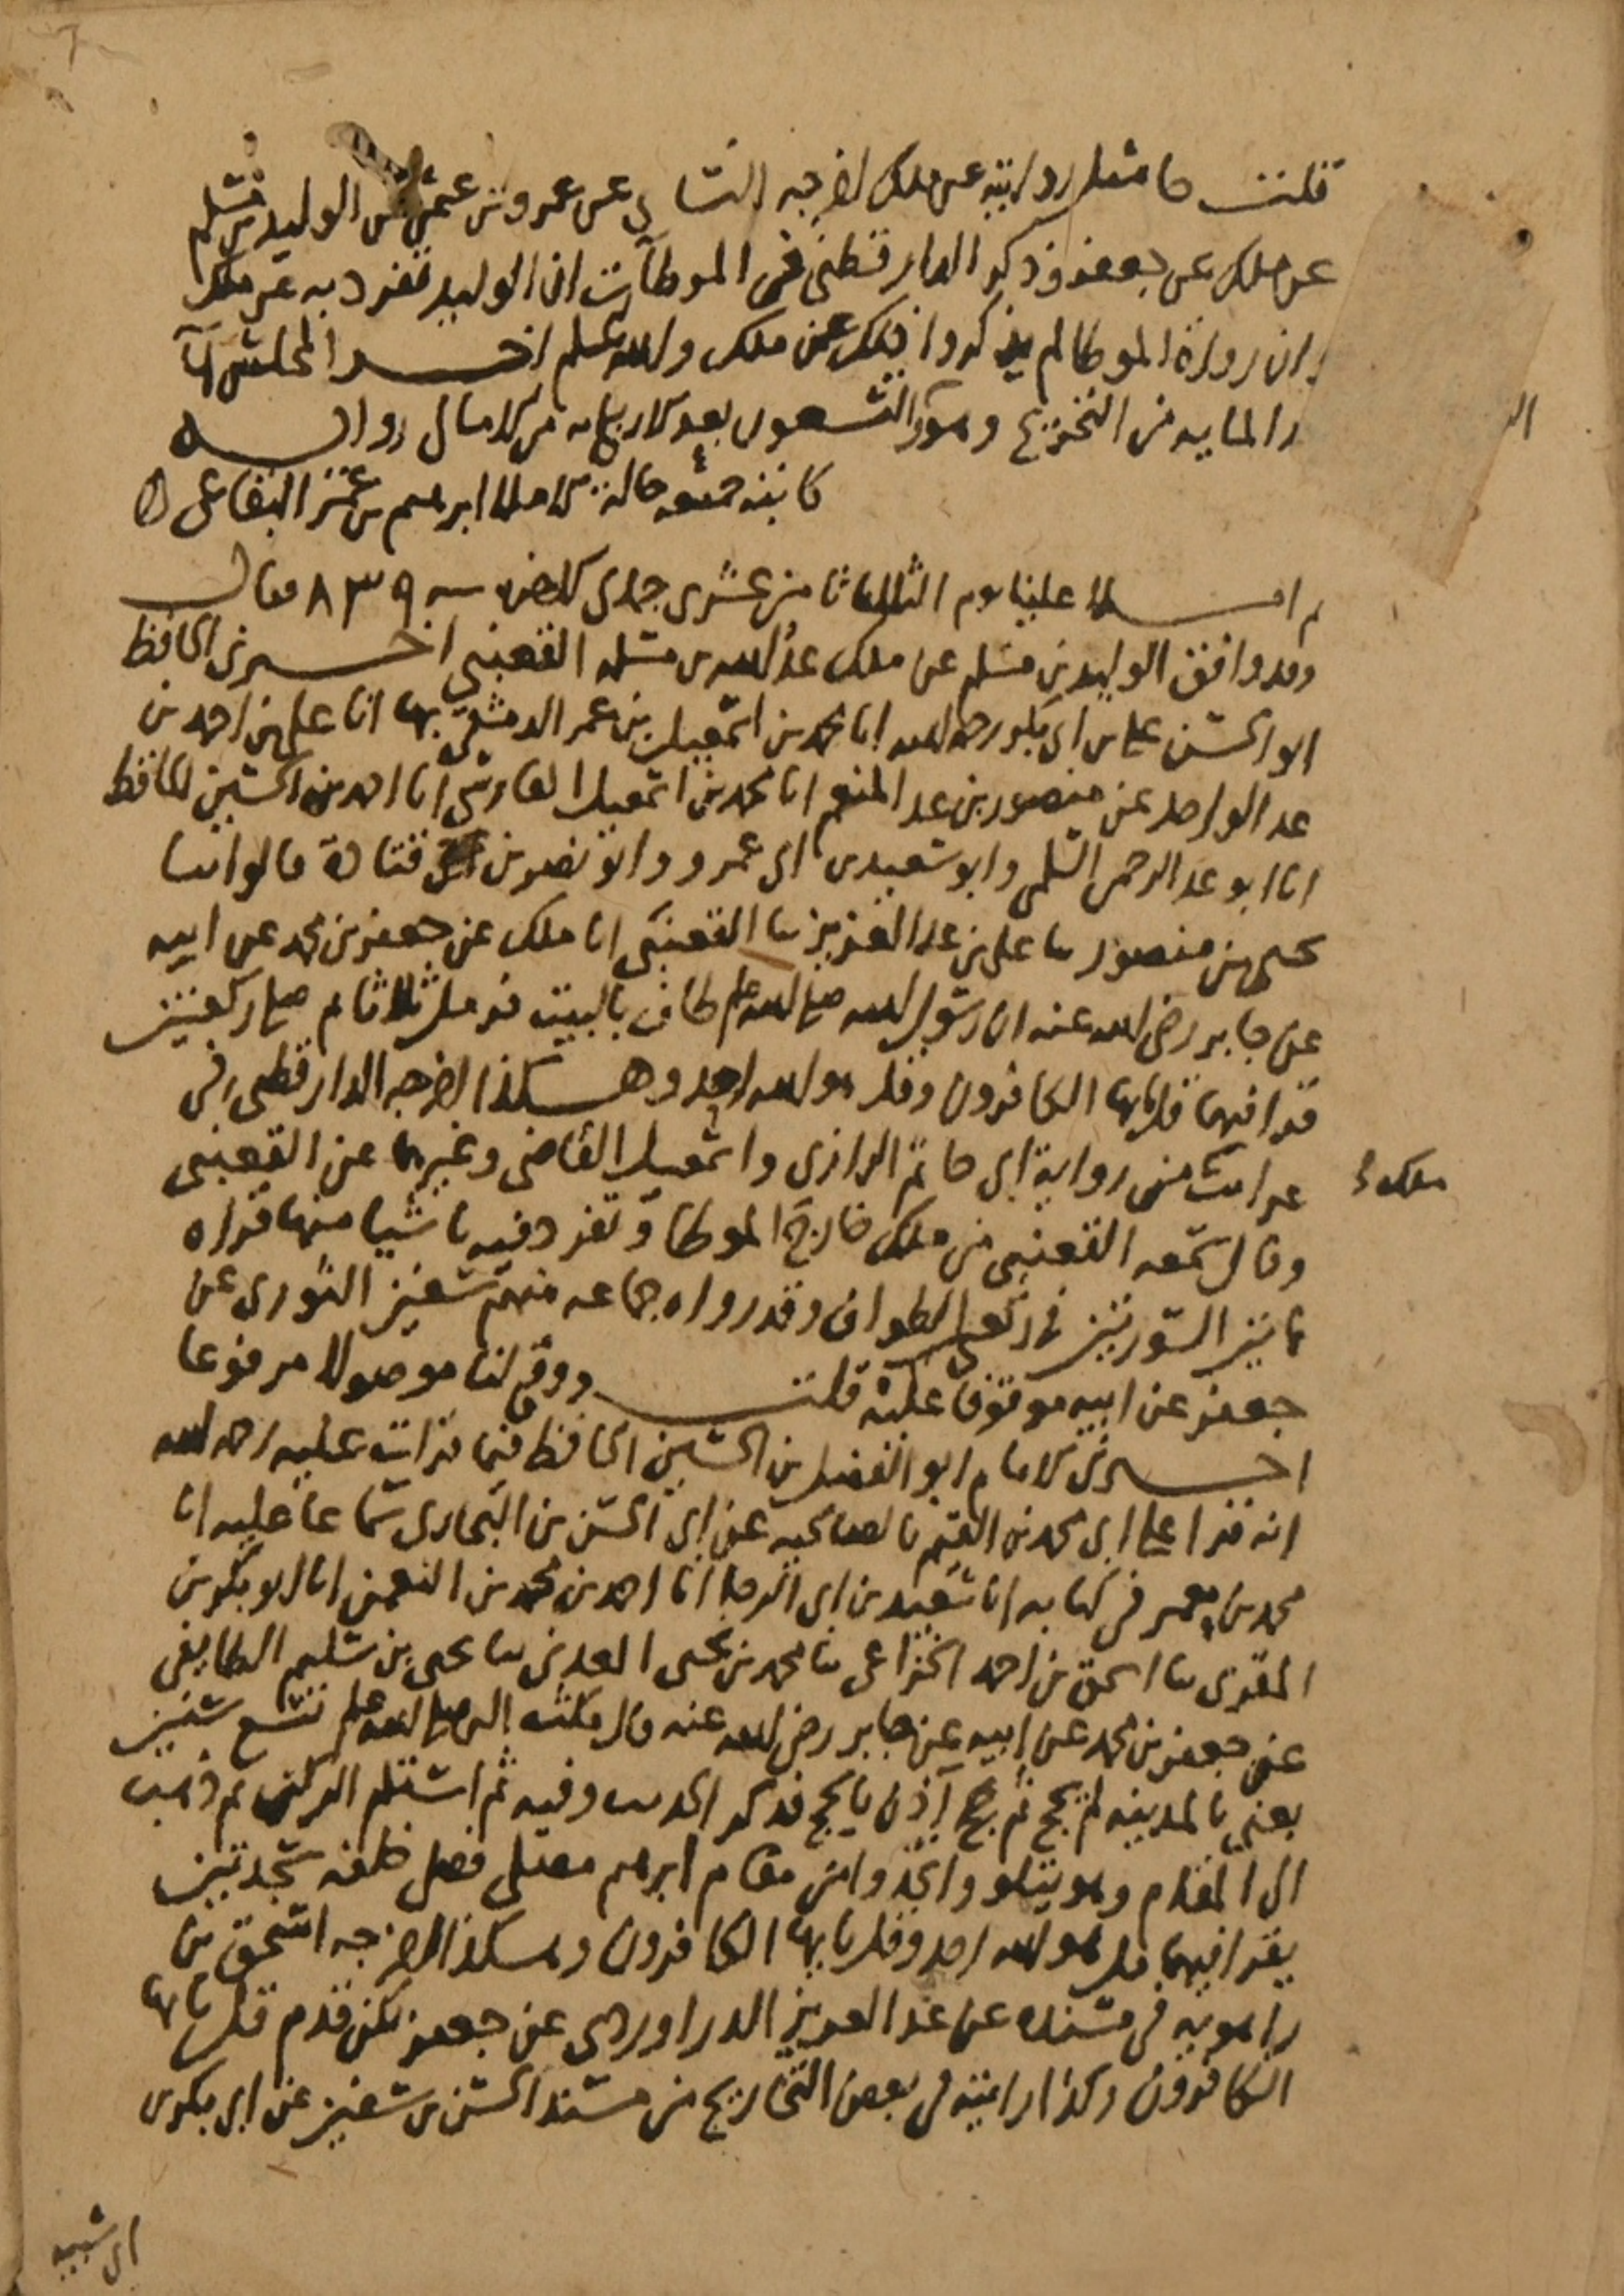 قلت مثل روايته عن ملك اخرجه النساى عن عمرو بن عثمن عن الوليد بن مسلم
عن ملك عن جعفر وذكر الدارقطنى فى الموطآت ان الوليد تفرد به عن ملك
وان رواة الموطا لم يذكروا ذلك عن ملك والله اعلم اخر المجلس
المايه من التخريج وهو التسعون بعد الاربعمايه من الامالى رواية
كاتبه سمعه الاملا ابرهيم بن عمر البقاعى
ثم املا علينا يوم الثلاثا ثامن عشرى جمادى الاخره سنه ٨٣٩ فقال
وقد وافق الوليد بن مسلم عن ملك عبد الله بن مسلمه القعنبى اخبرنى الحافظ
ابو الحسن على بن ابى بكر رحمه الله انا محمد بن اسمعيل بن عمر الدمشقى بها انا على بن احمد بن
عبد الواحد عن منصور بن عبد المنعم انا محمد بن اسمعيل الفارسى انا احمد بن الحسين الحافظ
انا ابو عبد الرحمن السلمى وابو سعيد بن ابى عمرو وابو نصر بن قتادة قالوا انبا
يحيى بن منصور ثنا على بن عبد العزيز ثنا القعنبى انا ملك عن جعفر بن محمد عن ابيه
عن جابر رضى الله عنه ان رسول الله صلى الله عليه وسلم طاف بالبيت فرمل ثلاثا ثم صلى ركعتين
قرا فيهما قل يايها الكافرون وقل هو الله احد وهكذا اخرجه الدارقطنى فى
غرائب من رواية ابى حاتم الرازى واسمعيل القاضى وغيرهما عن القعنبى
ملك
وقال سمعه القعنبى من ملك خارج الموطا وتفرد فيه باشيا منها قراه
هاتين السورتين فى ركعتى الطواف وقد رواه جماعه منهم سفين الثورى عن
جعفر عن ابيه موقوفا عليه قلت ووقع لنا موصولا مرفوعا
اخبرنى الامام ابو الفضل بن الحسين الحافظ فيما قرات عليه رحمه الله
انه قرا على ابى محمد بن القيم بالصالحيه عن ابى الحسن بن البخارى سماعا عليه انا
محمد بن معمر فى كتابه انا سعيد بن ابى الرجا انا احمد بن محمد بن النعمن انا ابو بكر بن
المقرى ثنا اسحق بن احمد الخزاعى ثنا محمد بن يحيى العدنى ثنا يحيى بن سليم الطايفى
عن جعفر بن محمد عن ابيه عن جابر رضى الله عنه قال مكث النبى صلى الله عليه وسلم تسع سنين
يعنى بالمدينه لم يحج ثم حج اذن بالحج فذكر الحديث وفيه ثم استلم الركن ثم ذهب
الى المقام وهو يتلو واتخذوا من مقام ابرهيم مصلى فصلى خلفه سجدتين
يقرا فيهما قل هو الله احد وقل يايها الكافرون وهكذا اخرجه اسحق بن
راهويه فى مسنده عن عبد العزيز الدراوردى عن جعفر لكن قدم قل يايها
الكافرون وكذا رايته فى بعض التخاريج من مسند الحسن بن سفين عن ابى بكر بن
ابى شيبه